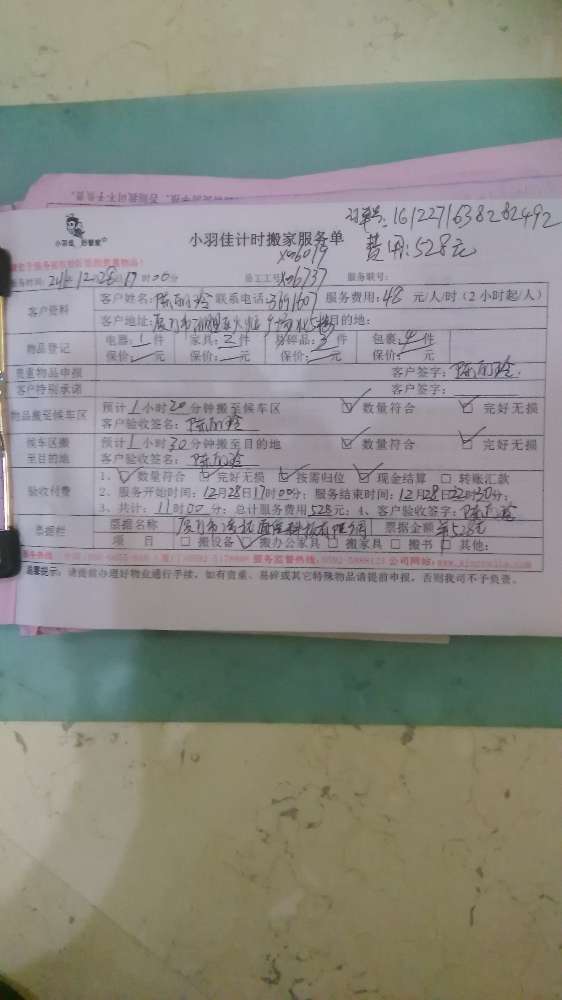 订单号:161227163828 2492
费用:528元
小羽佳 妙管家
小羽佳计时搬家服务单
xm6019
服务时间: 12月28日17时00分 员工工号:xm6737 服务联号:
客户资料
客户姓名: 联系电话: 服务费用:48元/人/时(2小时起/人)
客户地址: 目的地:
物品登记
电器:1件 家具:2件 易碎品:3件 包裹:4件
保价: 元 保价: 元 保价: 元 保价: 元
贵重物品申报 客户签字:
客户特别承诺 客户签字:
物品搬至候车区
预计1小时20分钟搬至候车区 数量符合 完好无损
客户验收签名:
候车区搬至目的地
预计1小时30分钟搬至目的地 数量符合 完好无损
客户验收签名:
验收付费
1、数量符合 完好无损 按需归位 现金结算 转账汇款
2、服务开始时间:12月28日17时00分;服务结束时间:12月28日22时30分;
3、共计:11时00分;总计服务费用528元;4、客户验收签字:
票据栏
票据名称 票据金额 ¥528元
项 目 搬设备 搬办公家具 搬家具 搬书 其他:
服务热线: 服务监督热线: 公司网站:
温馨提示:请提前办理好物业通行手续,如有贵重、易碎或其它特殊物品请提前申报,否则我司不予负责。